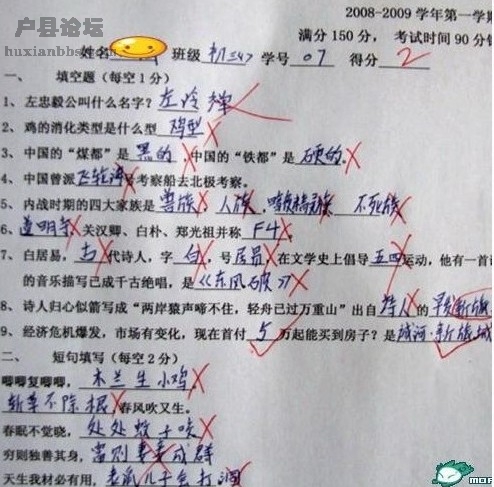 户县论坛
huxianbbs
2008-2009 学年第一学期
满分 150 分， 考试时间 90 分钟
姓名 班级 初三<4> 学号 07 得分 2
一、 填空题（每空 1 分）
1、左忠毅公叫什么名字？左冷禅
2、鸡的消化类型是什么型 鸡型
3、中国的“煤都”是 黑的，中国的“铁都”是 硬的。
4、中国曾派 飞轮海 号考察船去北极考察。
5、内战时期的四大家族是 兽族、人族、暗夜精灵族、不死族
6、道明寺、关汉卿、白朴、郑光祖并称 F4。
7、白居易，古 代诗人，字 白，号 居易，在文学史上倡导 五四 运动，他有一首诗
的音乐描写已成千古绝唱，是《东风破》
8、诗人归心似箭写成“两岸猿声啼不住，轻舟已过万重山”出自 诗人 的
9、经济危机爆发，市场有变化，现在首付 5 万起能买到房子？是 城河·新旗城
二、 短句填写（每空 2 分）
唧唧复唧唧，木兰生小鸡
斩草不除根，春风吹又生。
春眠不觉晓，处处蚊子咬
穷则独善其身，富则妻妾成群
天生我材必有用，老鼠儿子会打洞
MOP